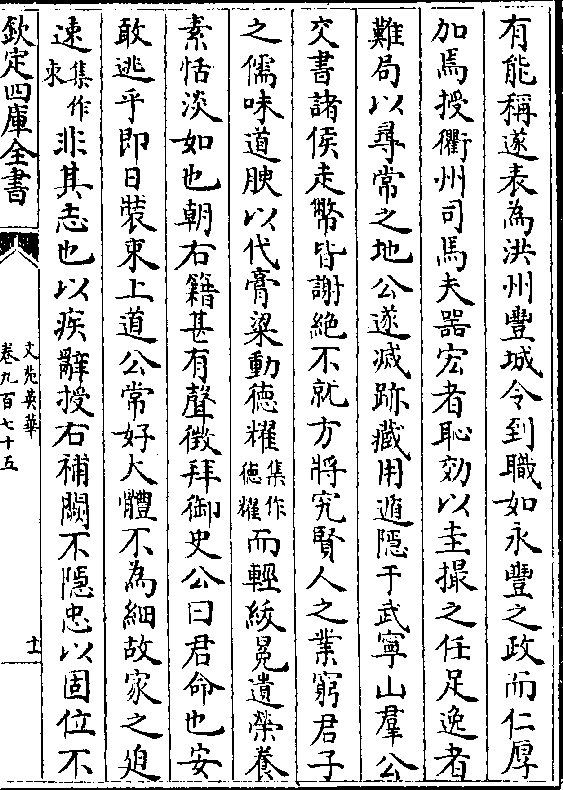 有能稱遂表為洪州豐城令到職如永豐之政而仁厚
加焉授衢州司馬夫器宏者恥効以圭撮之任足逸者
難局以尋常之地公遂滅跡藏用遁隱于武寧山羣公
交書諸侯走幣皆謝絶不就方將究賢人之業窮君子
之儒味道腴以代膏粱動徳耀集作徳耀而輕紱冕遺榮養
素恬淡如也朝右籍甚有聲徴拜御史公曰君命也安
敢逃乎即日裝束上道公常好大體不為細故家之迫
速集作束非其志也以疾辭授右補闕不隱忠以固位不
欽定四庫全書
文苑英華
卷九百七十五
十